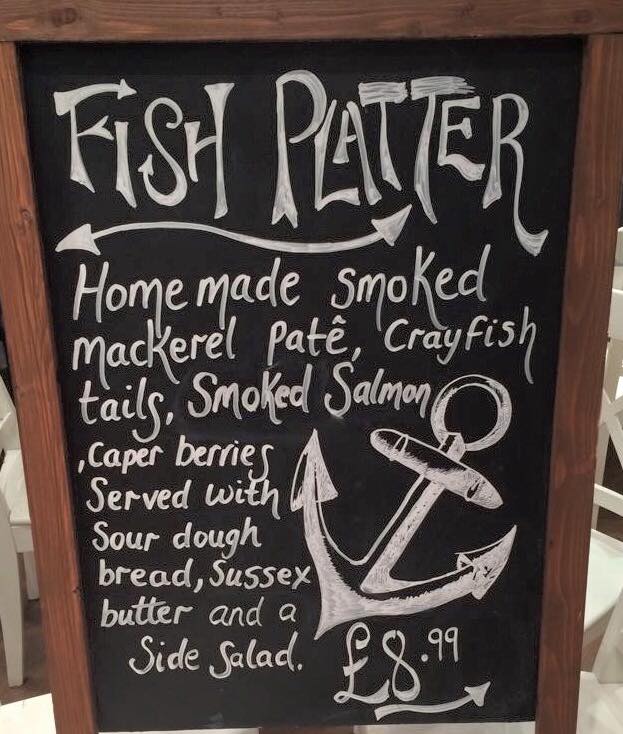 FISH PLATTER
Home made smoked
mackerel patê, Crayfish
tails, Smoked Salmon
,caper berries
Served with
Sour dough
bread, Sussex
butter and a
Side Salad.
£8.99